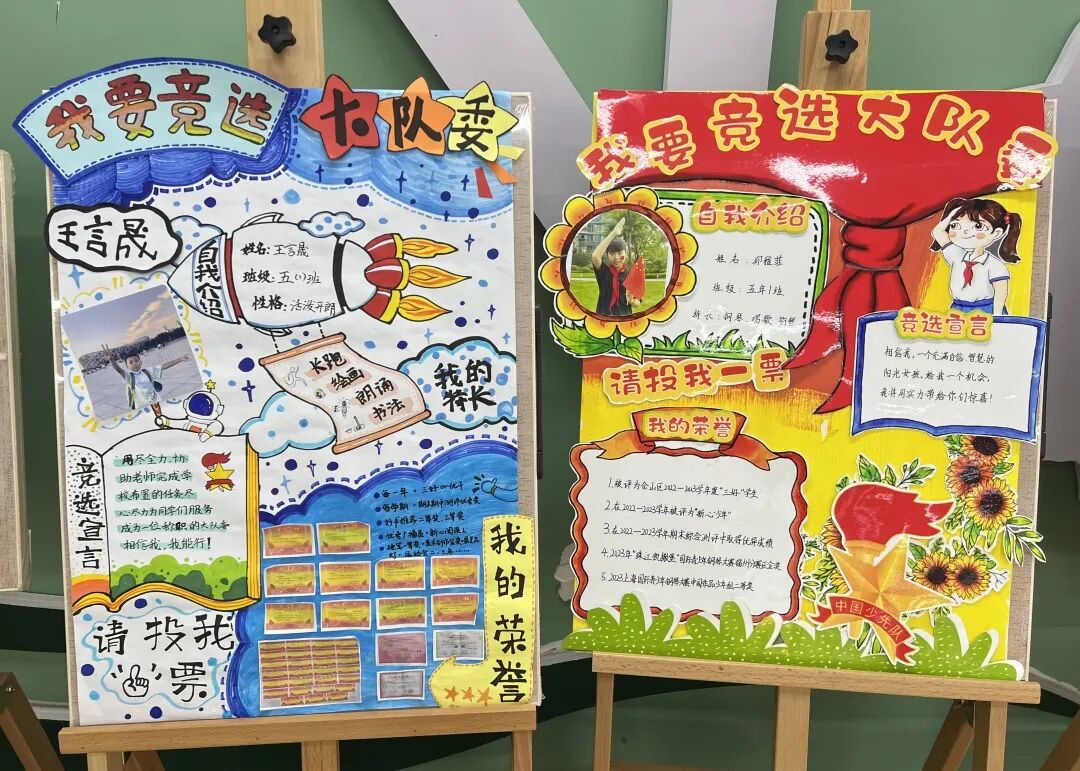 我要竞选
大队委
王言晟
自我介绍
姓名:王言晟
班级:五(1)班
性格:活泼开朗
长跑
绘画
朗诵
书法
我的
特长
竞选宣言
用尽全力,协
助老师完成学
校布置的任务尽
心尽力为同学们服务
成为一位称职的大队委
相信我,我能行!
请投我
票
我的荣誉
我要竞选大队委
自我介绍
姓名:郭稚菲
班级:五年1班
特长:钢琴、唱歌
请投我一票
竞选宣言
相信我,一个充满自信、智慧的
阳光女孩,给我一个机会,
我将用实力带给你们惊喜!
我的荣誉
1.被评为仓山区2022—2023学年度"三好"学生
2.在2022—2023学年被评为"新心少年"
3.在2022—2023学年期末综合测评中取得优异成绩
4.2023年"珠江·恺撒堡"国际青少年钢琴大赛福州分赛区金奖
5.2023上海国际青少年钢琴大赛中国作品少年组二等奖
中国少先队